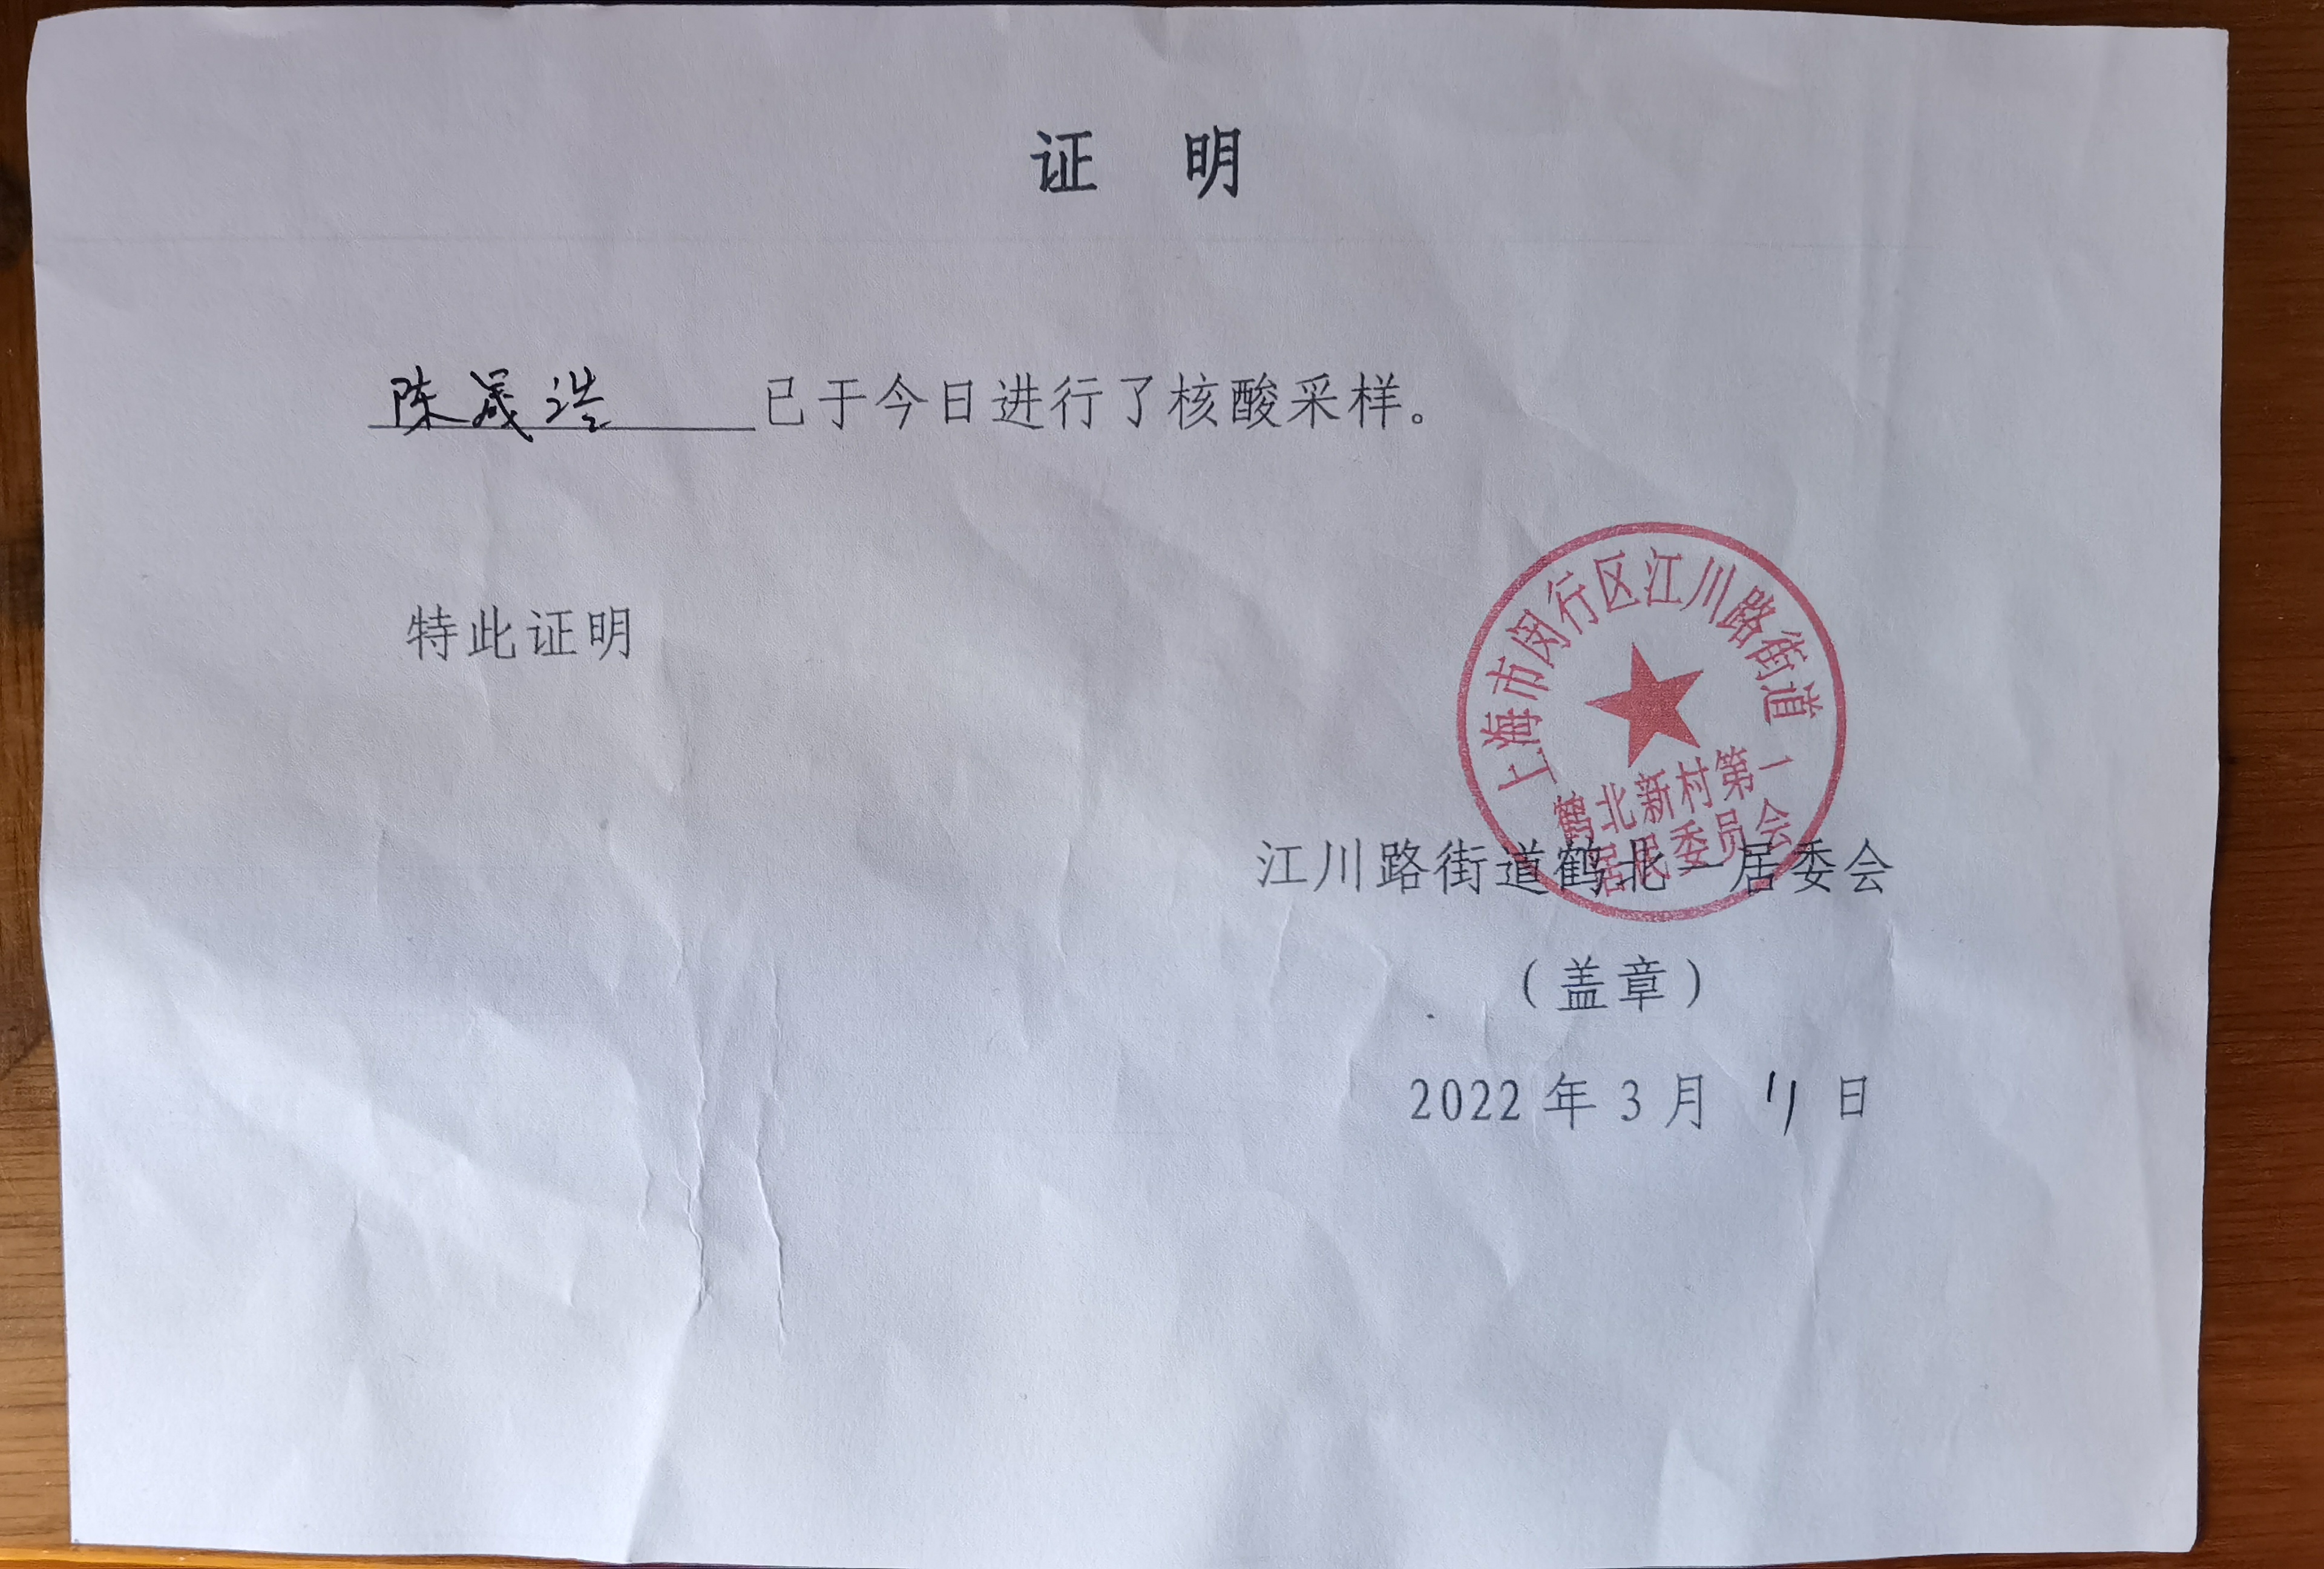 证 明
陈晟浩 已于今日进行了核酸采样。
特此证明
上海市闵行区江川路街道
鹤北新村第一
居民委员会
江川路街道鹤北一居委会
（盖章）
2022 年 3 月 11 日